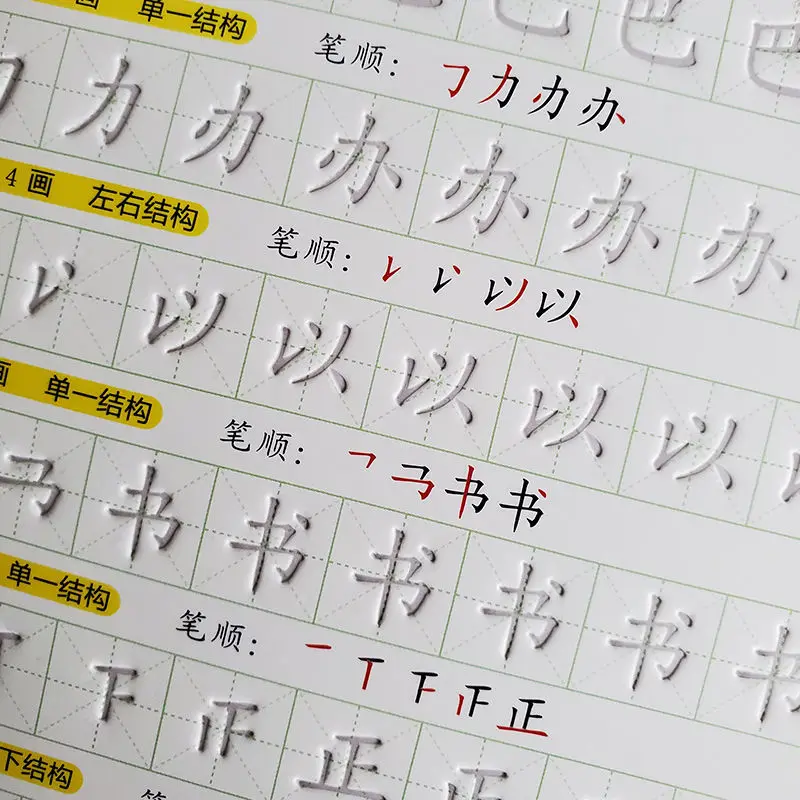 巴 巴 巴
画 单一结构
笔顺： ㇆ 力 办 办
力 办 办 办 办 办
4画 左右结构
笔顺： 以 以
以 以 以 以 以 以
画 单一结构
笔顺： ㇕ 书 书
书 书 书 书 书 书
单一结构
笔顺： 一 丅 下 正
下 正 正
下结构
笔